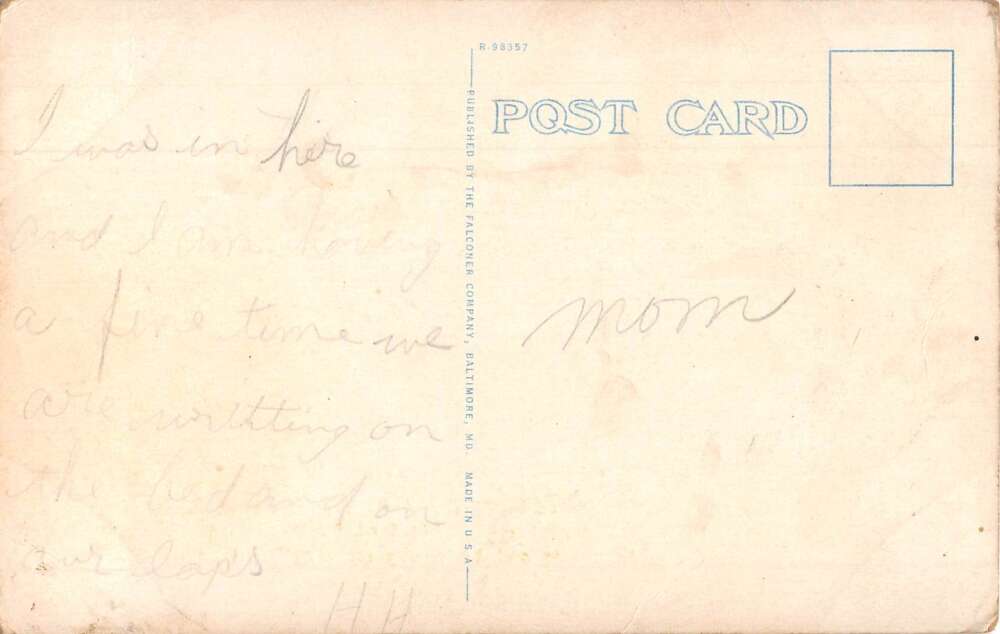 R-98357
POST CARD
PUBLISHED BY THE FALCONER COMPANY, BALTIMORE, MD. MADE IN U S A
I was in here
and I am having
a fine time we
are writting on
the bed and on
our laps
HH
mom